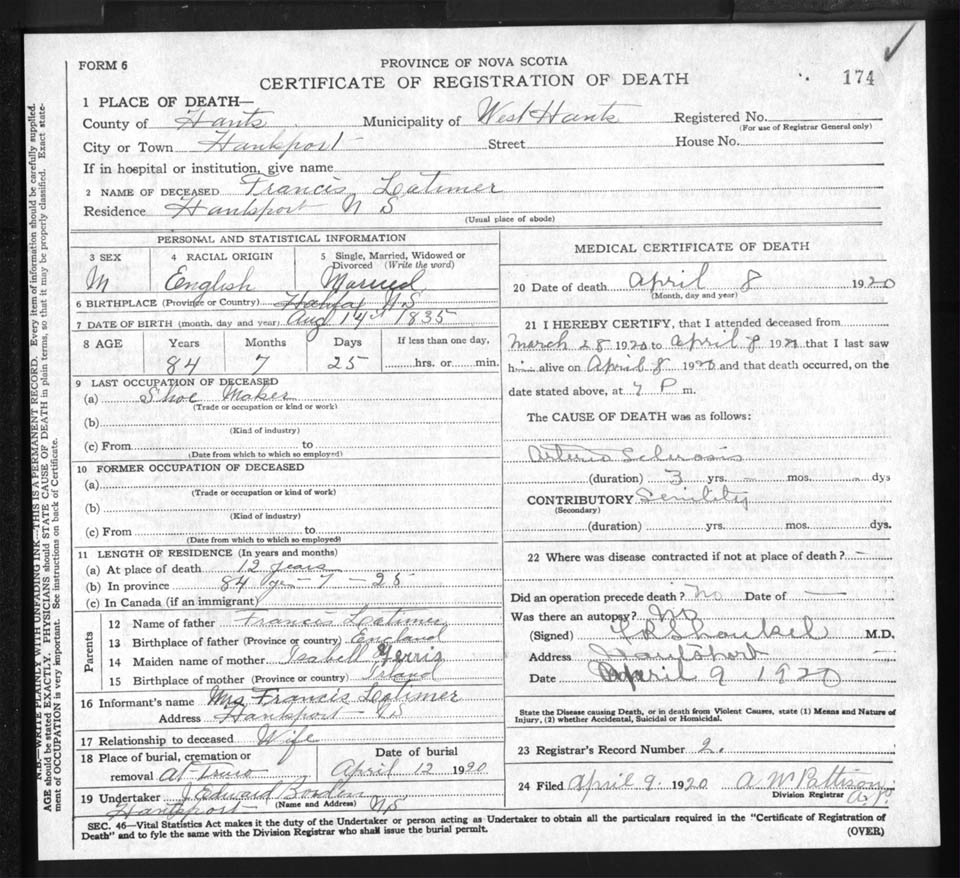 FORM 6
PROVINCE OF NOVA SCOTIA
CERTIFICATE OF REGISTRATION OF DEATH
174
1 PLACE OF DEATH—
County of Hants Municipality of West Hants Registered No.
(For use of Registrar General only)
City or Town Hantsport Street House No.
If in hospital or institution, give name
2 NAME OF DECEASED Francis Latimer
Residence Hantsport N S
(Usual place of abode)
PERSONAL AND STATISTICAL INFORMATION
3 SEX 4 RACIAL ORIGIN 5 Single, Married, Widowed or Divorced (Write the word)
M English Married
6 BIRTHPLACE (Province or Country) Halifax N S
7 DATE OF BIRTH (month, day and year) Aug 14th 1835
8 AGE Years Months Days If less than one day,
84 7 25 hrs. or min.
9 LAST OCCUPATION OF DECEASED
(a) Shoe Maker
(Trade or occupation or kind or work)
(b)
(Kind of industry)
(c) From to
(Date from which to which so employed)
10 FORMER OCCUPATION OF DECEASED
(a)
(Trade or occupation or kind of work)
(b)
(Kind of industry)
(c) From to
(Date from which to which so employed)
11 LENGTH OF RESIDENCE (In years and months)
(a) At place of death 12 years
(b) In province 84 yrs - 7 - 25
(c) In Canada (if an immigrant)
Parents
12 Name of father Francis Latimer
13 Birthplace of father (Province or country) England
14 Maiden name of mother Isabell
15 Birthplace of mother (Province or country) Irland
16 Informant's name Mrs Francis Latimer
Address Hantsport NS
17 Relationship to deceased Wife
18 Place of burial, cremation or removal At Truro
Date of burial
April 12 1920
19 Undertaker J. Edward Borden
(Name and Address)
Hantsport NS
MEDICAL CERTIFICATE OF DEATH
20 Date of death April 8 1920
(Month, day and year)
21 I HEREBY CERTIFY, that I attended deceased from
March 28 1920 to April 8 1920 that I last saw
him alive on April 8 1920 and that death occurred, on the
date stated above, at 7 P m.
The CAUSE OF DEATH was as follows:
Arterio Sclerosis
(duration) 3 yrs. – mos. – dys
CONTRIBUTORY Senility
(Secondary)
(duration) yrs. mos. dys.
22 Where was disease contracted if not at place of death? –
Did an operation precede death? No Date of —
Was there an autopsy? No
(Signed) M.D.
Address Hantsport
Date April 9 1920
State the Disease causing Death, or in death from Violent Causes, state (1) Means and Nature of
Injury, (2) whether Accidental, Suicidal or Homicidal.
23 Registrar's Record Number 2.
24 Filed April 9 1920 A. W. Pattison
Division Registrar
SEC. 46—Vital Statistics Act makes it the duty of the Undertaker or person acting as Undertaker to obtain all the particulars required in the "Certificate of Registration of
Death" and to fyle the same with the Division Registrar who shall issue the burial permit.
(OVER)
N.B.—WRITE PLAINLY WITH UNFADING INK—THIS IS A PERMANENT RECORD. Every item of information should be carefully supplied.
AGE should be stated EXACTLY. PHYSICIANS should STATE CAUSE OF DEATH in plain terms, so that it may be properly classified. Exact state-
ment of OCCUPATION is very important. See instructions on back of Certificate.